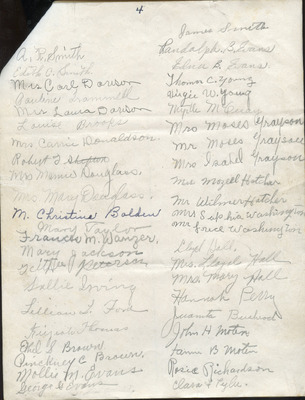 4
A. R. Smith
Edith V. Smith
Mrs Carl Davison
Pauline Trammell
Mrs Laura Davison
Louise Troops
Mrs Carrie Donaldson.
Robert F.
Mrs Mamie Douglass.
Mrs Mary Douglass.
M. Christina Baldwin
Mary Taylor
Francis M. Wanzer,
Mary Jackson
Peterson
Sallie Irving
Lillian L. Ford
Thomas
Phil S Brown
Pinckney C Brown,
Mollie M. Evans
George S Evans
James Smith
Randolph B Evans
Elsia B. Evans
Thomas C. Young
Virgie W. Young
Myrtle M.
Mrs Moses Grayson
Mr Moses Grayson
Mrs Isabel Grayson
Mrs Mozell Hatcher
Mr Wilmer Hatcher
Mrs Sophie Washington
Mr Price Washington
Lloyd Hall,
Mrs. Lloyd Hall
Mrs. Mary Hall
Hannah Perry
Juanita
John H Moten
Fannie B Moten
Rosie Richardson
Clara F. Tyler.